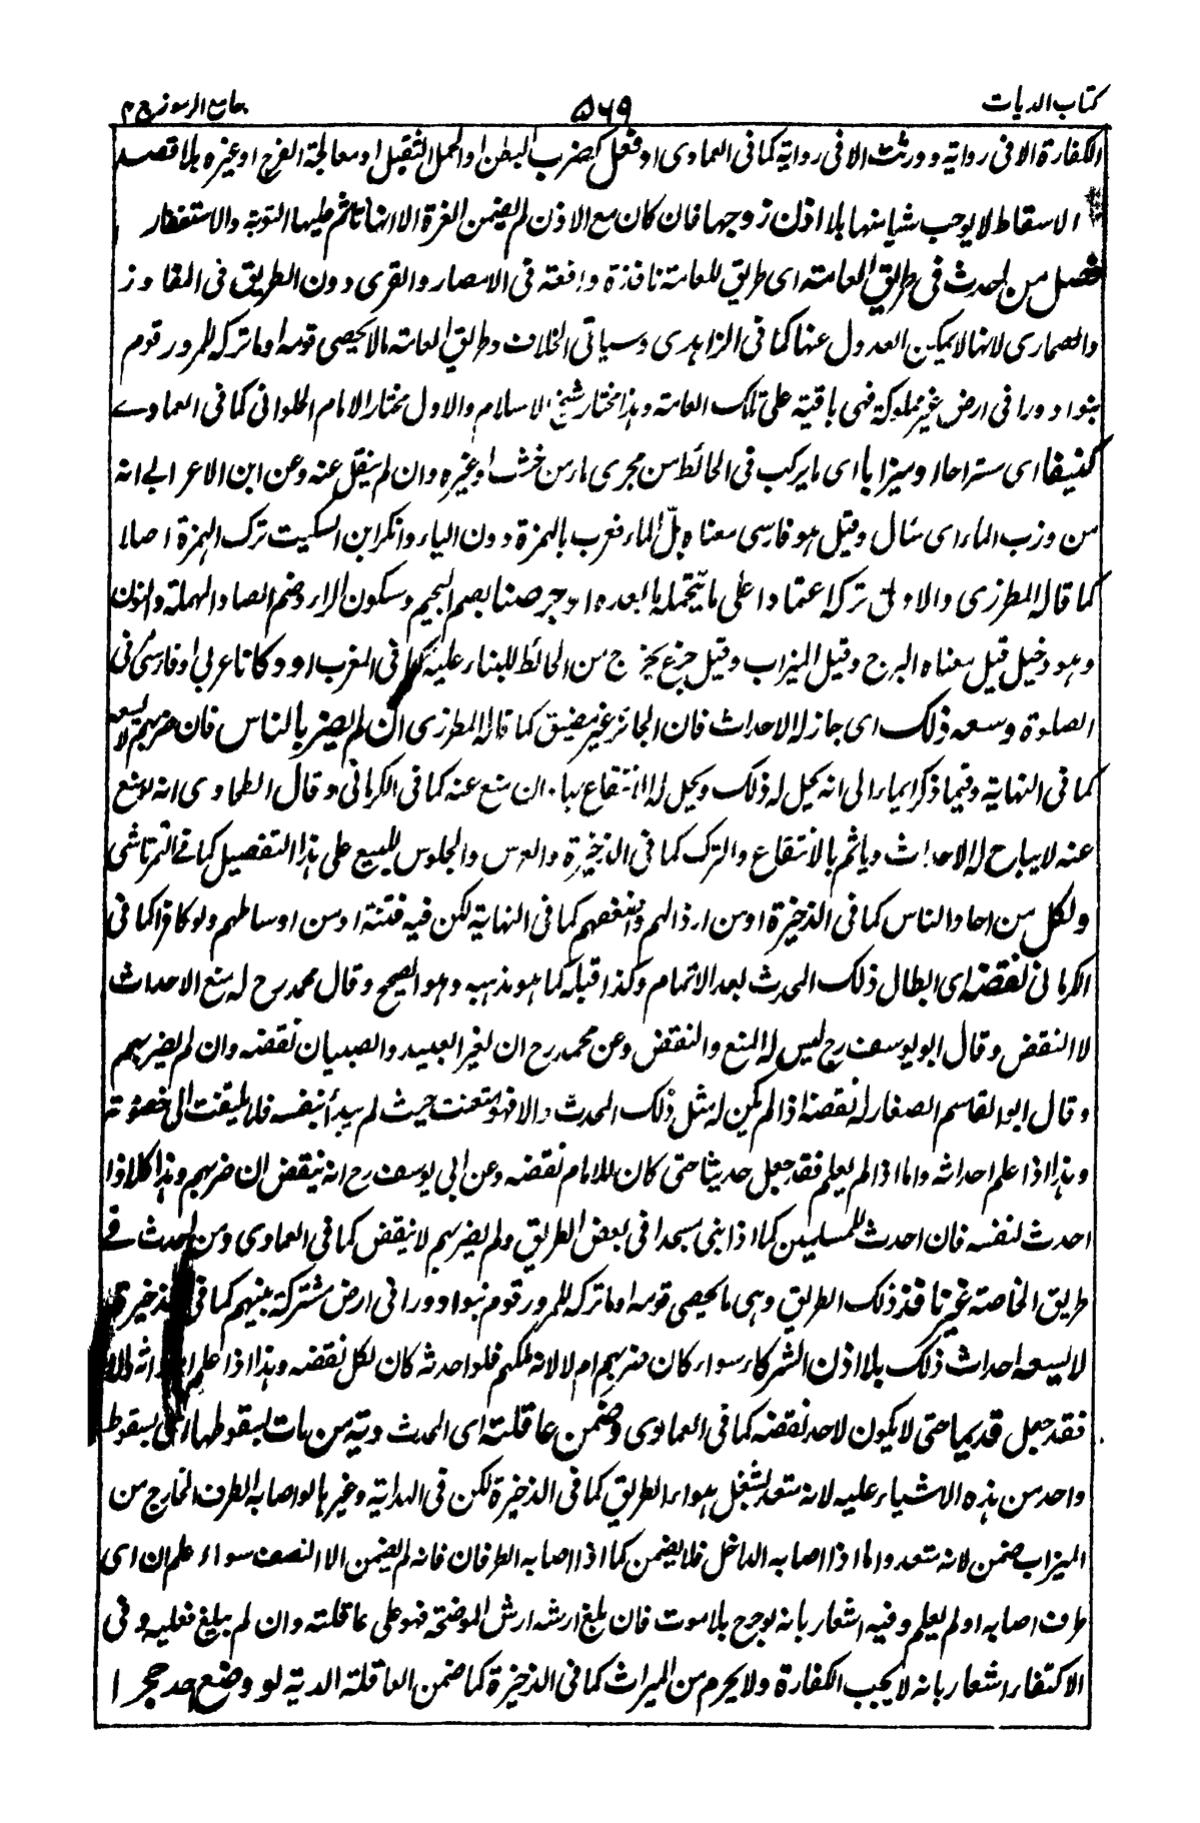 كتاب الديات ٥٦٩ جامع الرموز ج ٢
الكفارة الا فى رواية وورثت الا فى رواية كما فى العمادى او فعل كضرب البطن او الحمل الثقيل او معالجة الفرج او غيره بلا قصد
الاسقاط لا يوجب شيا منها بلا اذن زوجها فان كان مع الاذن لم يضمن الغرة الا انها تاثم عليها التوبة والاستغفار
فصل من احدث فى طريق العامة اى طريق للعامة نافذة واقعة فى الامصار والقرى دون الطريق فى المفاوز
والصحارى لانها لا يمكن العدول عنها كما فى الزاهدى وسياتى الخلاف وطريق العامة ما لا يحصى قومه او ما تركه للمرور قوم
بنوا دورا فى ارض غير مملوكة فهى باقية على تلك العامة وهذا مختار شيخ الاسلام والاول مختار الامام الحلوانى كما فى العمادى
كنيفا اى ستراحا او ميزابا اى ما يركب فى الحائط من مجرى ماء من خشب او غيره وان لم ينقل عنه وعن ابن الاعرابى انه
من وزب الماء اى سال وقيل هو فارسى معناه بلّ الماء فعرب بالهمزة دون الياء وانكر ابن السكيت ترك الهمزة اصلا
كما قاله المطرزى والاولى تركه اعتمادا على ما يتحمله ما بعده او جرصنا بضم الجيم وسكون الراء وضم الصاد المهملة والنون
وهو دخيل قيل معناه البرج وقيل الميزاب وقيل جزع يخرج من الحائط للبناء عليه كما فى المغرب او دكانا عربى او فارسى كما فى
الصلوة وسعه ذلك اى جاز له الاحداث فان الجائز غير مضيق كما قاله المطرزى ان لم يضر بالناس فان ضر بهم لا يسعه
كما فى النهاية وفيما ذكر ايماء الى انه يحل له ذلك ويحل له الانتفاع بها وان منع عنه كما فى الكرمانى وقال الطحاوى انه لو منع
عنه لا يباح له الاحداث وياثم بالانتفاع والترك كما فى الذخيرة والغرس والجلوس للبيع على هذا التفصيل كما فى التمرتاشى
ولكل من احاد الناس كما فى الذخيرة او من ارذالهم واضعفهم كما فى النهاية لكن فيه فتنة او من اوساطهم ولو كافرا كما فى
الكرمانى نقضه اى ابطال ذلك المحدث بعد الاتمام وكذا قبله كما هو مذهبه وهو الصحيح وقال محمد رح له منع الاحداث
لا النقض وقال ابو يوسف رح ليس له المنع والنقض وعن محمد رح ان لغير العبيد والصبيان نقضه وان لم يضر بهم
وقال ابو القاسم الصفار له نقضه اذا لم يكن له مثل ذلك المحدث والا فهو متعنت حيث لم يبدأ بنفسه فلا يلتفت الى خصومته
وهذا اذا علم احداثه واما اذا لم يعلم فقد جعل حديثا حتى كان للامام نقضه وعن ابى يوسف رح انه ينقض ان ضر بهم وهذا كله اذا
احدث لنفسه فان احدث للمسلمين كما اذا بنى مسجدا فى بعض الطريق ولم يضر بهم لا ينقض كما فى العمادى ومن احدث فى
طريق الخاصة غير نافذ ذلك الطريق وهى ما يحصى قومه او ما تركه للمرور قوم بنوا دورا فى ارض مشتركة بينهم كما فى الذخيرة
لا يسعه احداث ذلك بلا اذن الشركاء سواء كان ضر بهم ام لا لانه ملكهم فلو احدثه كان لكل نقضه وهذا اذا علم احداثه والا
فقد جعل قديما حتى لا يكون لاحد نقضه كما فى العمادى وضمن عاقلته اى المحدث دية من مات بسقوطها اى بسقوط
واحد من هذه الاشياء عليه لانه متعد لشغل هواء الطريق كما فى الذخيرة لكن فى الهداية وغيرها لو اصابه الطرف الخارج من
الميزاب ضمن لانه متعد واما اذا اصابه الداخل فلا يضمن كما اذا اصابه الطرفان فانه لم يضمن الا النصف سواء علم ان اى
طرف اصابه او لم يعلم وفيه اشعار بانه لو جرح بلا موت فان بلغ ارشه ارش الموضحة فهو على عاقلته وان لم يبلغ فعليه وفى
الاكتفاء اشعار بانه لا يجب الكفارة ولا يحرم من الميراث كما فى الذخيرة كما ضمن العاقلة الدية لو وضع احد حجرا